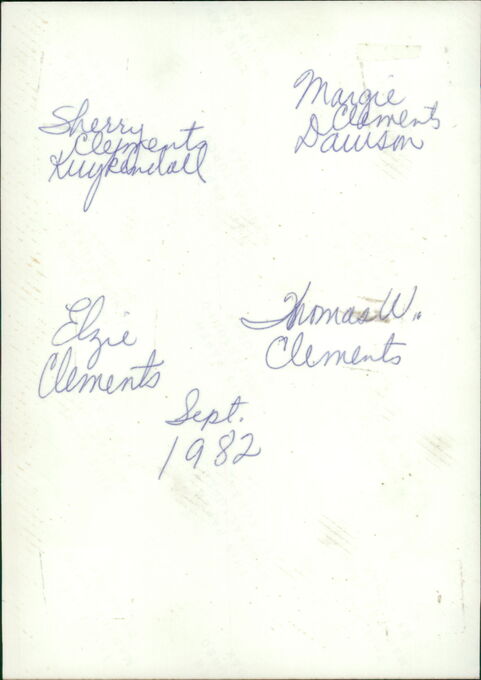 Sherry
Clements
Kuykendall
Margie
Clements
Dawson
Elzie
Clements
Thomas W.
Clements
Sept.
1982